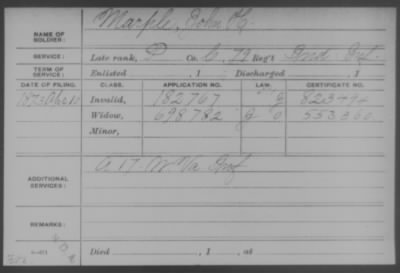 NAME OF SOLDIER: Marple, John H.
SERVICE: Late rank, P Co. C, 79 Reg't Ind Inf.
TERM OF SERVICE: Enlisted , 1 Discharged , 1
DATE OF FILING. CLASS. APPLICATION NO. LAW. CERTIFICATE NO.
Invalid, 182767
Widow, 698782 G 553360
Minor,
ADDITIONAL SERVICES: A 17 W Va Inf
REMARKS:
Died , 1 , at